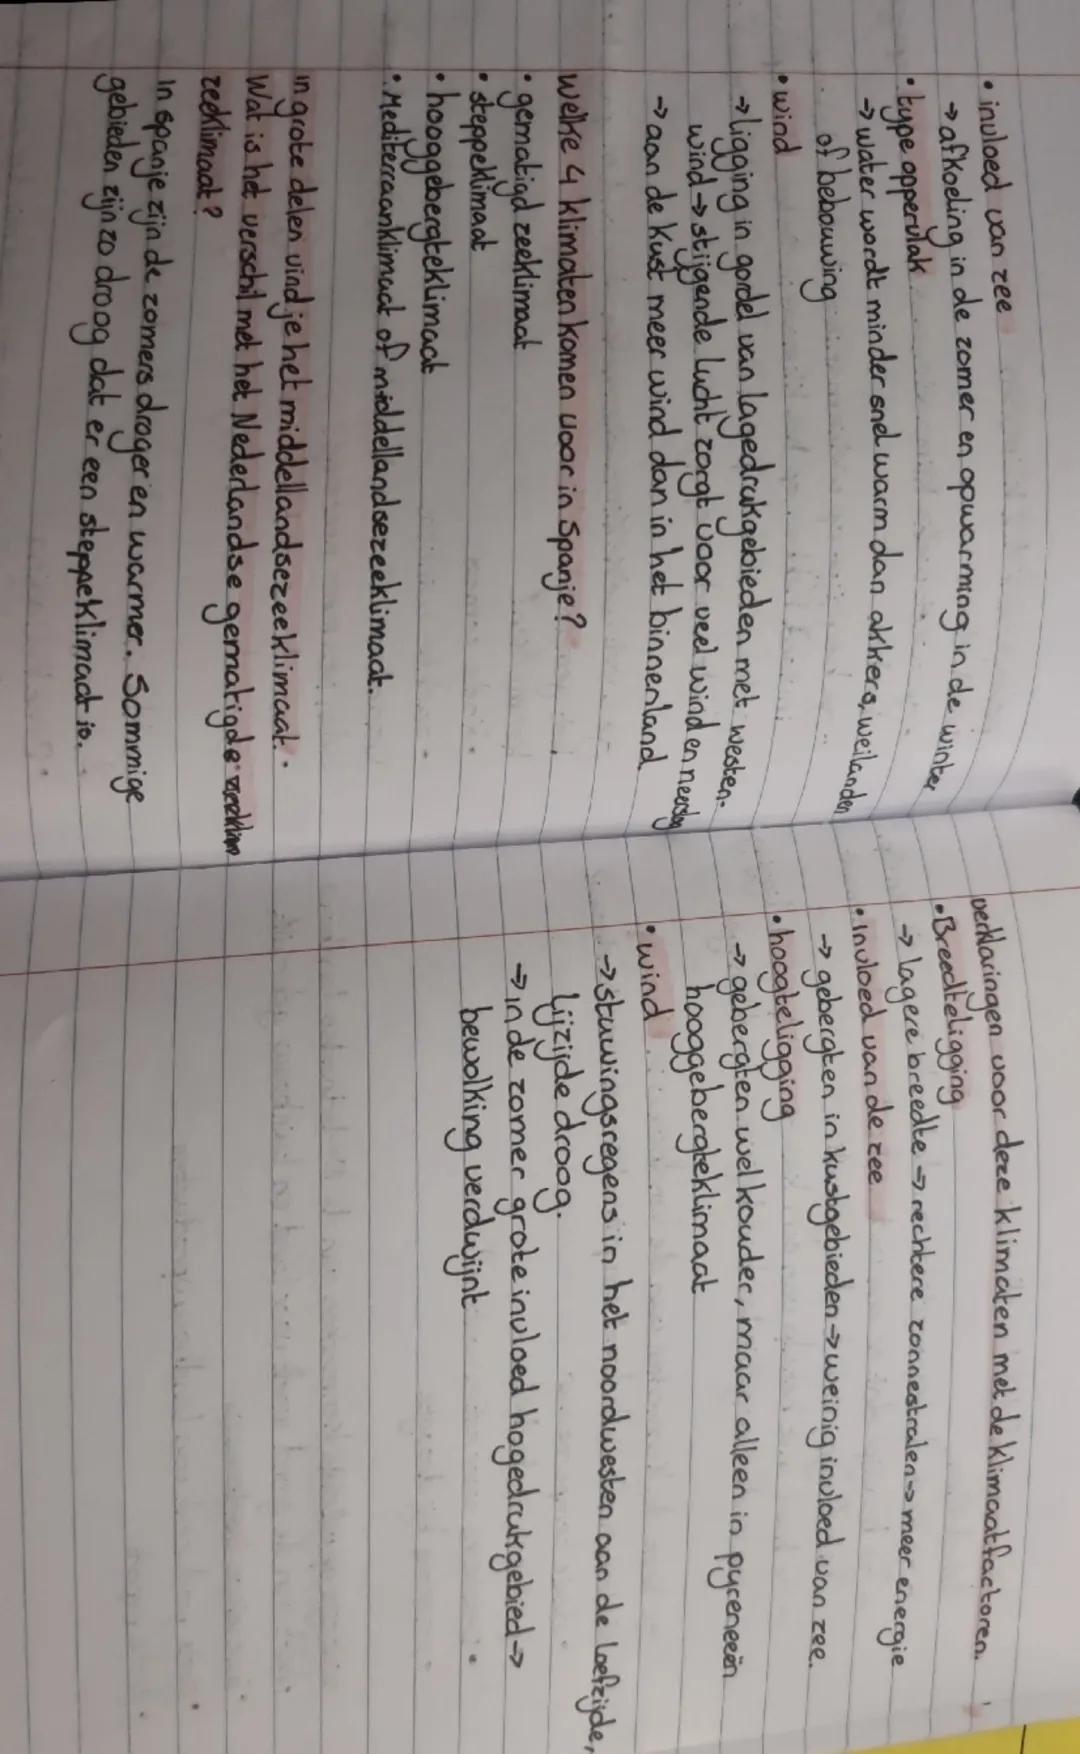 • invloed van zee
→ afkoeling in de zomer en opwarming in de winter
• type oppervlak
→ water wordt minder snel warm dan akkers, weilanden
of bebouwing
• wind
→ ligging in gordel van lagedrukgebieden met westen-
wind → stijgende lucht zorgt voor veel wind en neerslag
→ aan de kust meer wind dan in het binnenland
welke 4 klimaten komen voor in Spanje?
• gematigd zeeklimaat
• steppeklimaat
• hooggebergteklimaat
• Mediterraanklimaat of middellandsezeeklimaat.
in grote delen vind je het middellandsezeeklimaat.
Wat is het verschil met het Nederlandse gematigde
zeeklimaat?
In spanje zijn de zomers droger en warmer. Sommige
gebieden zijn zo droog dat er een steppeklimaat is.
verklaringen voor deze klimaten met de klimaatfactoren.
• Breedteligging
→ lagere breedte → rechtere zonnestralen → meer energie
• invloed van de zee
→ gebergten in kustgebieden → weinig invloed van zee.
• hoogteligging
→ gebergten wel kouder, maar alleen in pyreneeën
hooggebergteklimaat
• wind
→ stuwingsregens in het noordwesten aan de loefzijde,
lijzijde droog.
→ in de zomer grote invloed hogedrukgebied →
bewolking verdwijnt